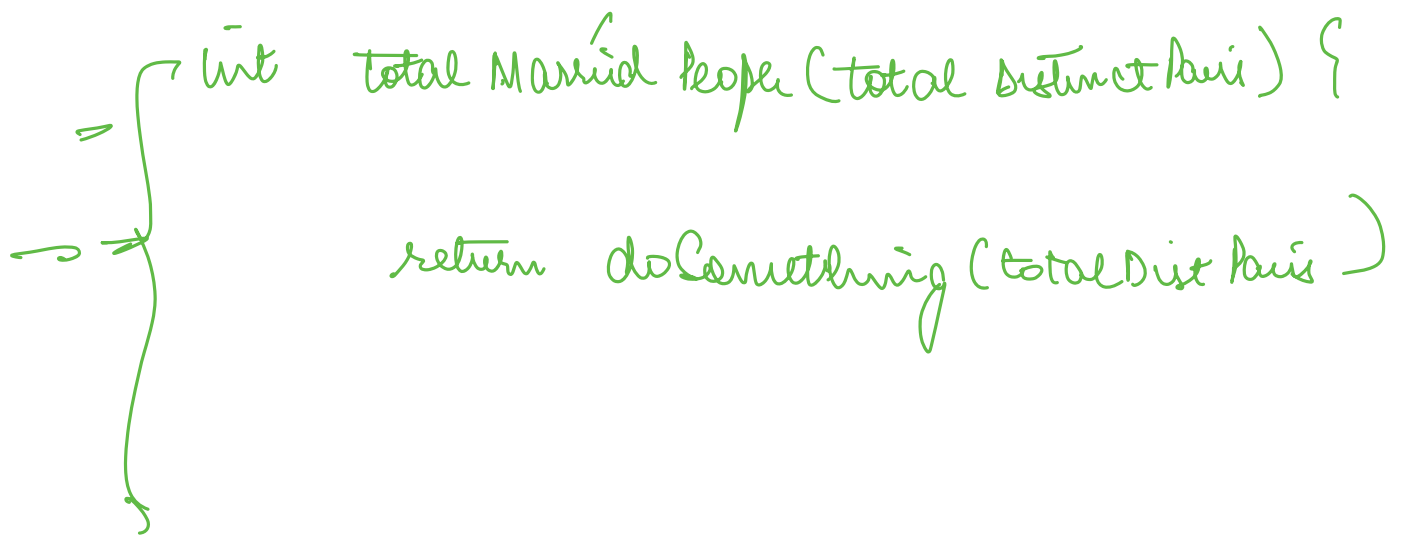 int total Married People (total Distinct Pairs) {
return doSomething (total Dist Pairs)